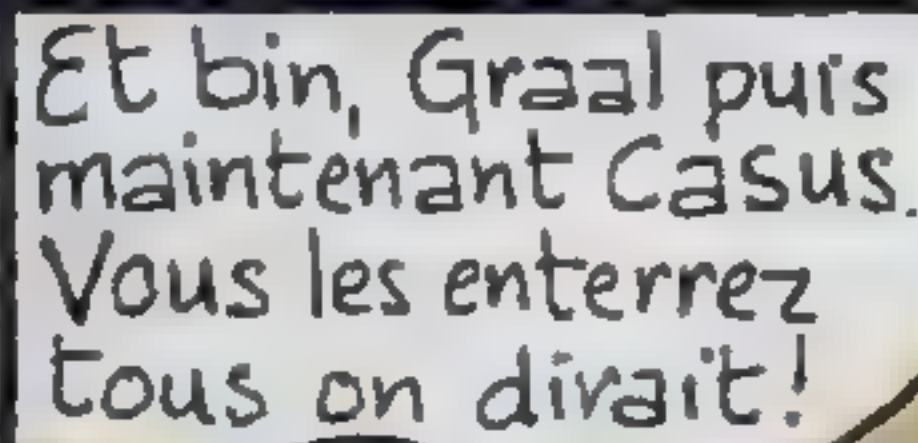 Et bin, Graal puis
maintenant Casus.
Vous les enterrez
tous on dirait!